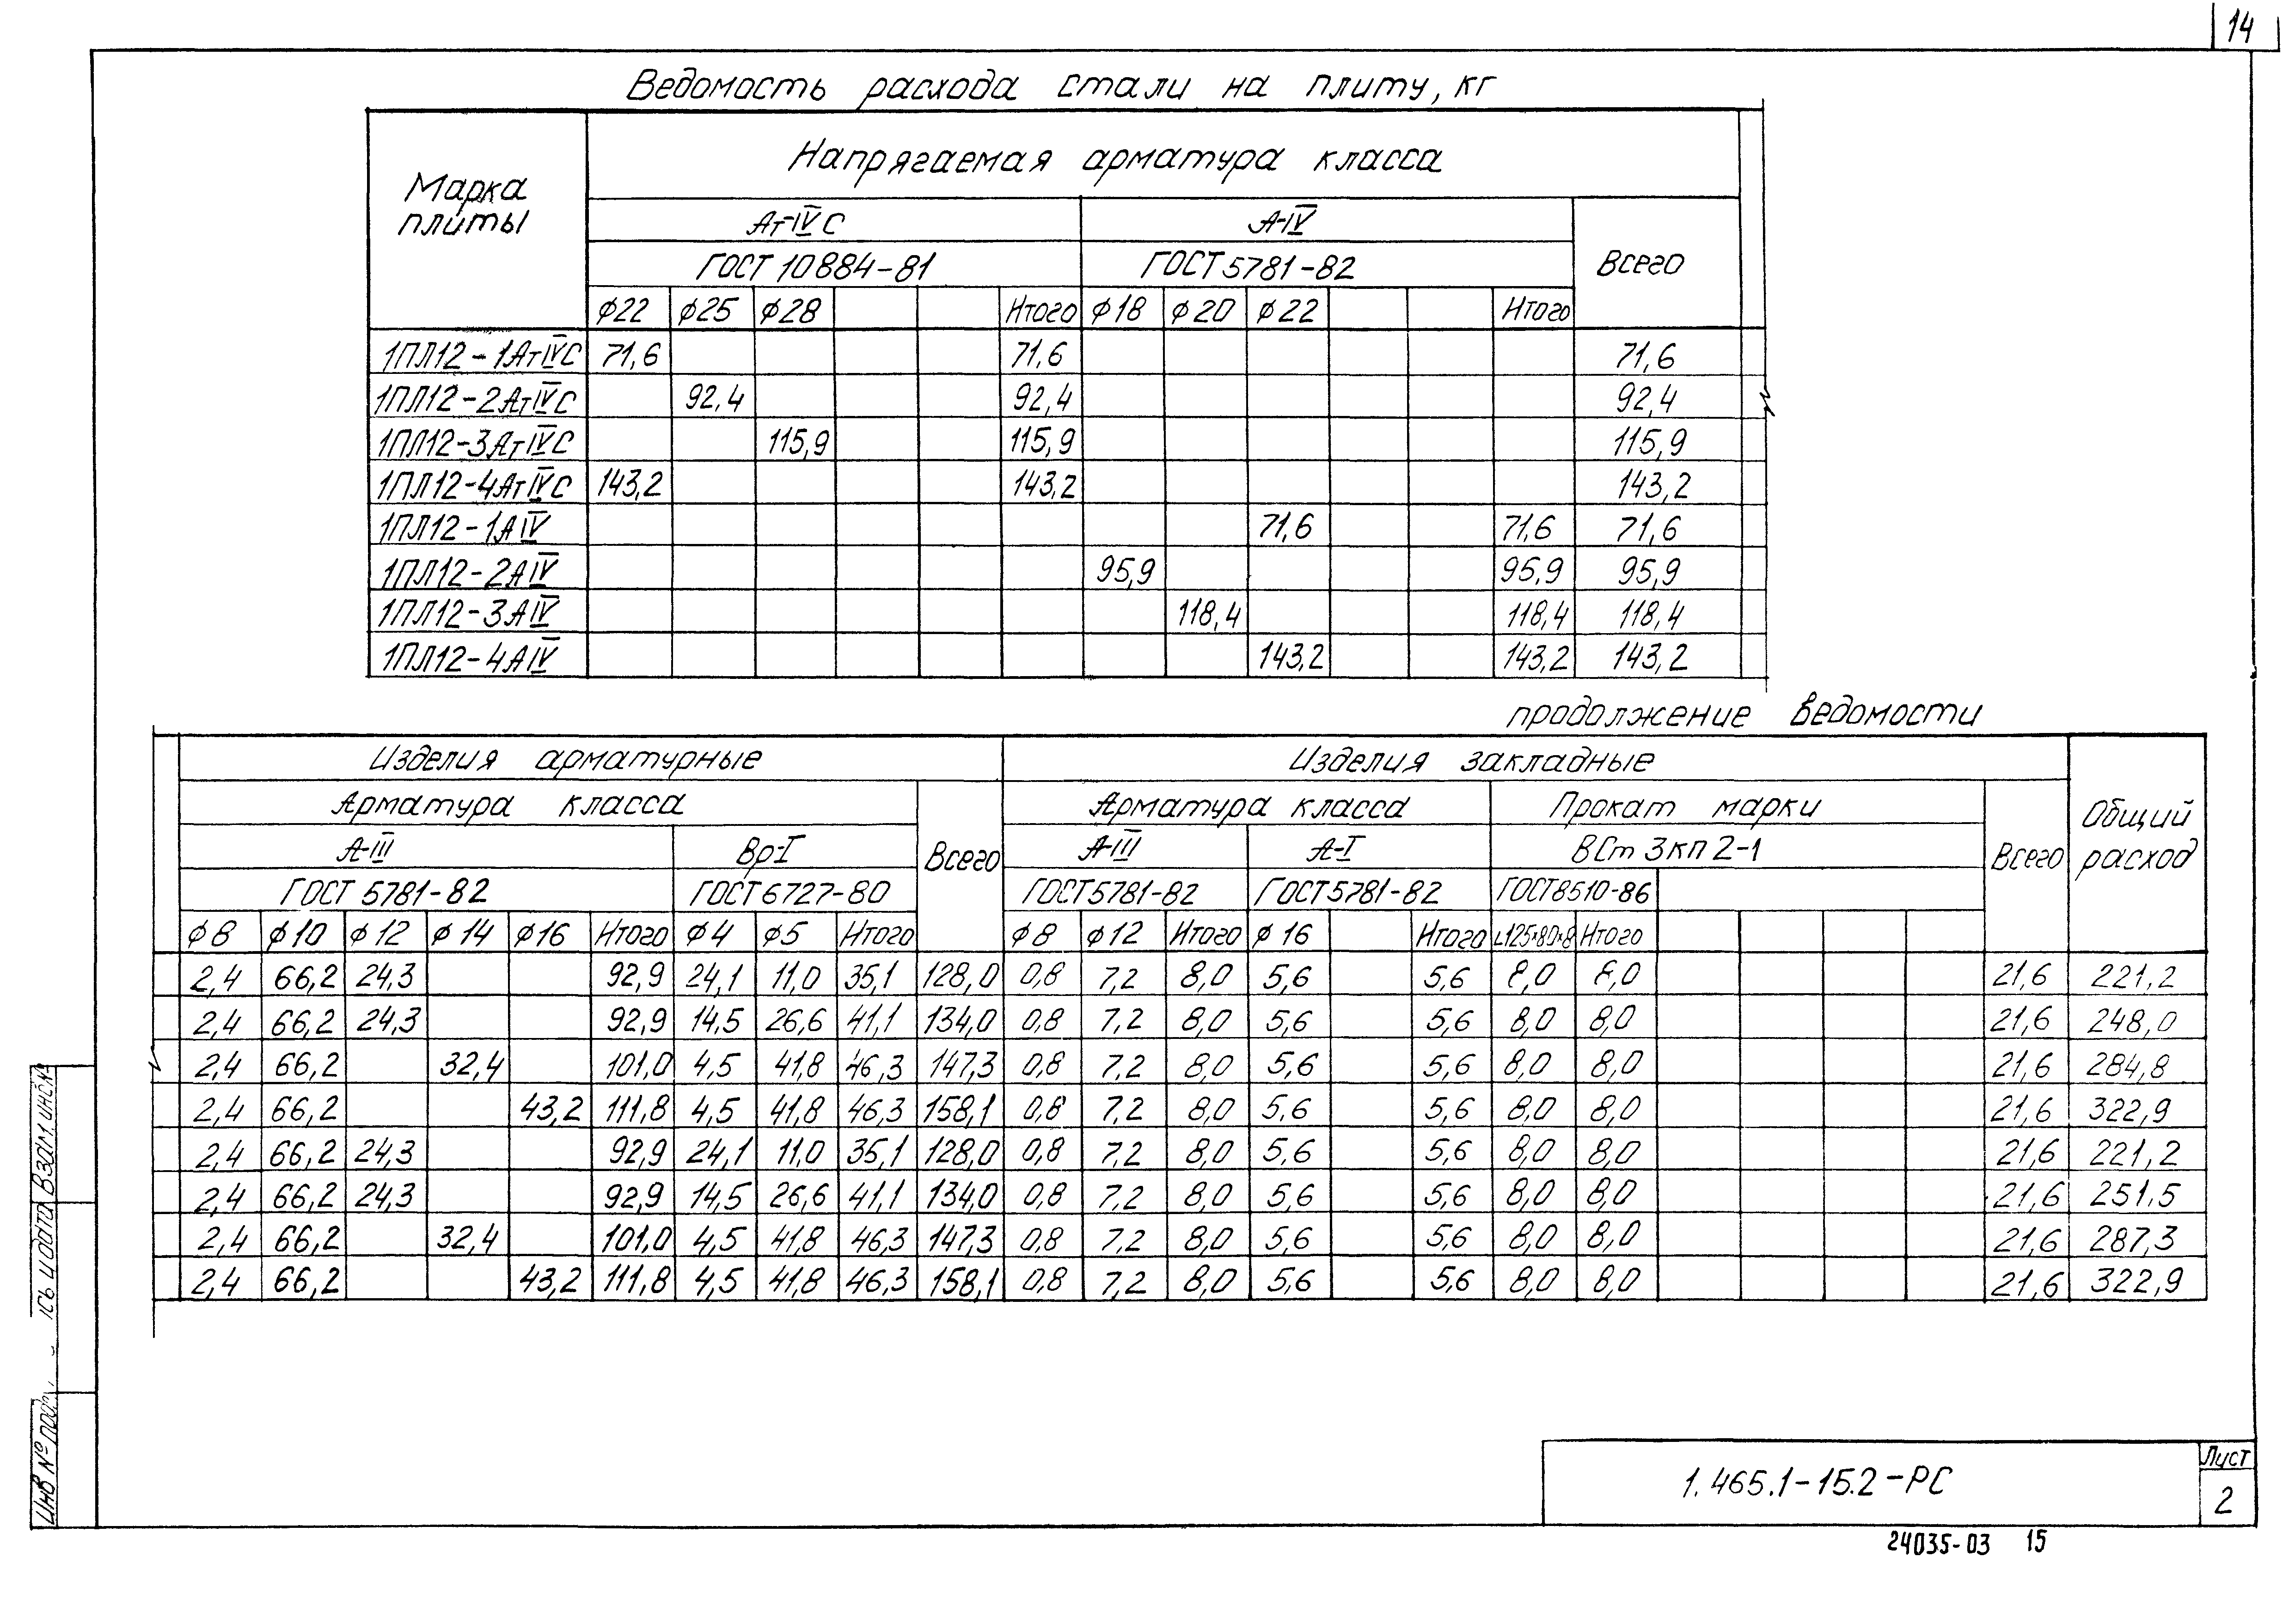 14
Ведомость расхода стали на плиту, кг
Марка плиты
Напрягаемая арматура класса
Ат-IVС А-IV Всего
ГОСТ 10884-81 ГОСТ 5781-82
φ22 φ25 φ28 Итого φ18 φ20 φ22 Итого
1ПЛ12-1АтIVС 71,6 71,6 71,6
1ПЛ12-2АтIVС 92,4 92,4 92,4
1ПЛ12-3АтIVС 115,9 115,9 115,9
1ПЛ12-4АтIVС 143,2 143,2 143,2
1ПЛ12-1АIV 71,6 71,6 71,6
1ПЛ12-2АIV 95,9 95,9 95,9
1ПЛ12-3АIV 118,4 118,4 118,4
1ПЛ12-4АIV 143,2 143,2 143,2
продолжение ведомости
Изделия арматурные Изделия закладные Общий расход
Арматура класса Всего Арматура класса Прокат марки Всего
А-III Вр-I А-III А-I ВСт 3кп 2-1
ГОСТ 5781-82 ГОСТ 6727-80 ГОСТ 5781-82 ГОСТ 5781-82 ГОСТ 8510-86
φ8 φ10 φ12 φ14 φ16 Итого φ4 φ5 Итого φ8 φ12 Итого φ16 Итого L125×80×8 Итого
2,4 66,2 24,3 92,9 24,1 11,0 35,1 128,0 0,8 7,2 8,0 5,6 5,6 8,0 8,0 21,6 221,2
2,4 66,2 24,3 92,9 14,5 26,6 41,1 134,0 0,8 7,2 8,0 5,6 5,6 8,0 8,0 21,6 248,0
2,4 66,2 32,4 101,0 4,5 41,8 46,3 147,3 0,8 7,2 8,0 5,6 5,6 8,0 8,0 21,6 284,8
2,4 66,2 43,2 111,8 4,5 41,8 46,3 158,1 0,8 7,2 8,0 5,6 5,6 8,0 8,0 21,6 322,9
2,4 66,2 24,3 92,9 24,1 11,0 35,1 128,0 0,8 7,2 8,0 5,6 5,6 8,0 8,0 21,6 221,2
2,4 66,2 24,3 92,9 14,5 26,6 41,1 134,0 0,8 7,2 8,0 5,6 5,6 8,0 8,0 21,6 251,5
2,4 66,2 32,4 101,0 4,5 41,8 46,3 147,3 0,8 7,2 8,0 5,6 5,6 8,0 8,0 21,6 287,3
2,4 66,2 43,2 111,8 4,5 41,8 46,3 158,1 0,8 7,2 8,0 5,6 5,6 8,0 8,0 21,6 322,9
Взам. инв. №
и дата
Инв № подл.
1.465.1-15.2-РС
Лист
2
24035-03 15